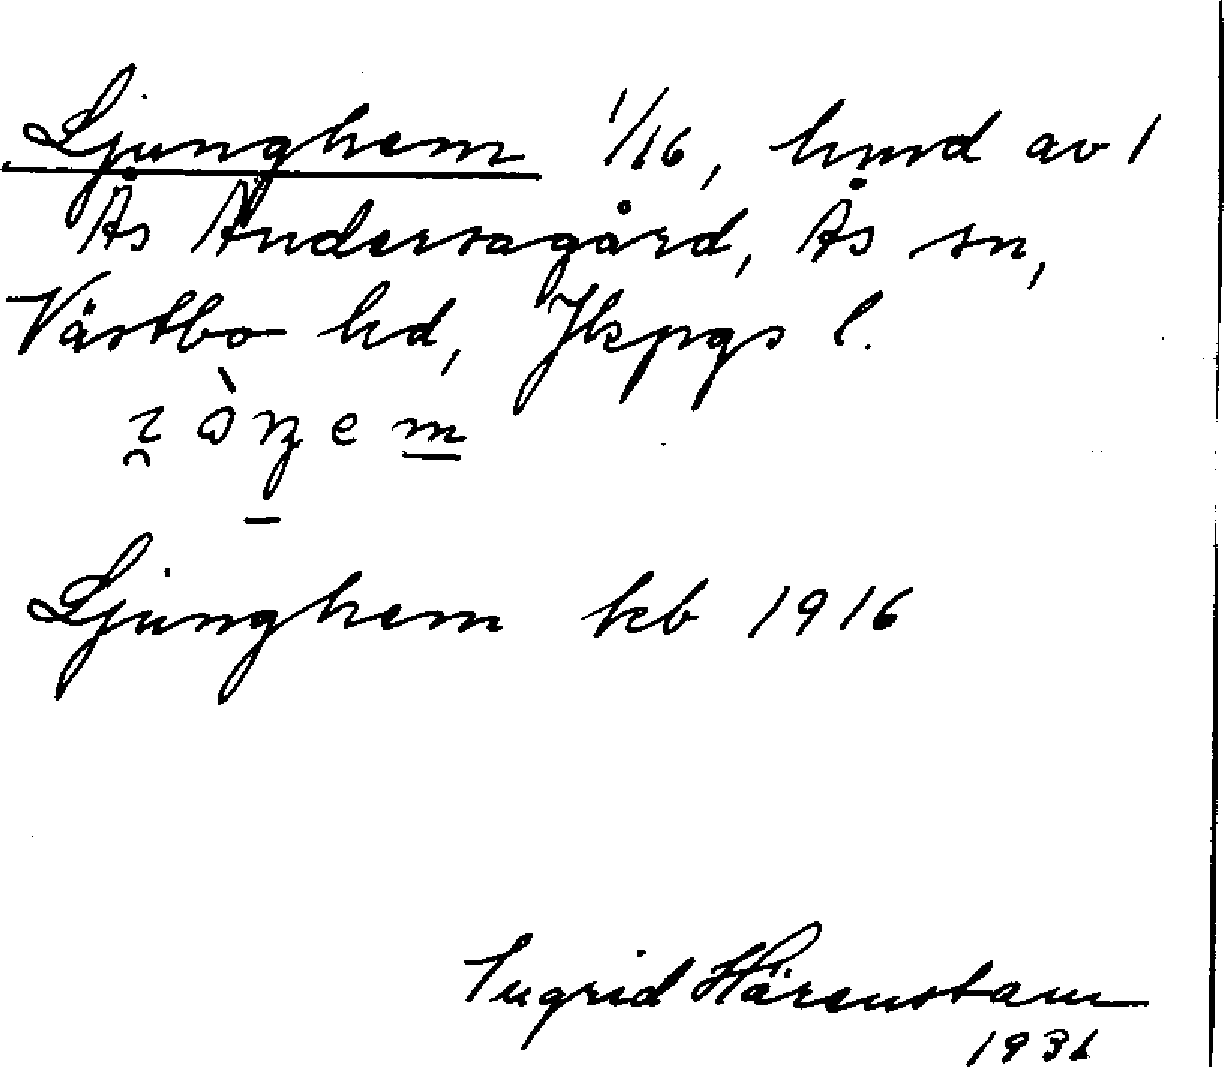 Ljunghem 1/16, hmd av 1
Ås Andersagård, Ås sn,
Västbo hd, Jkpgs l.
Ljunghem kb 1916
Ingrid Härenstam
1931